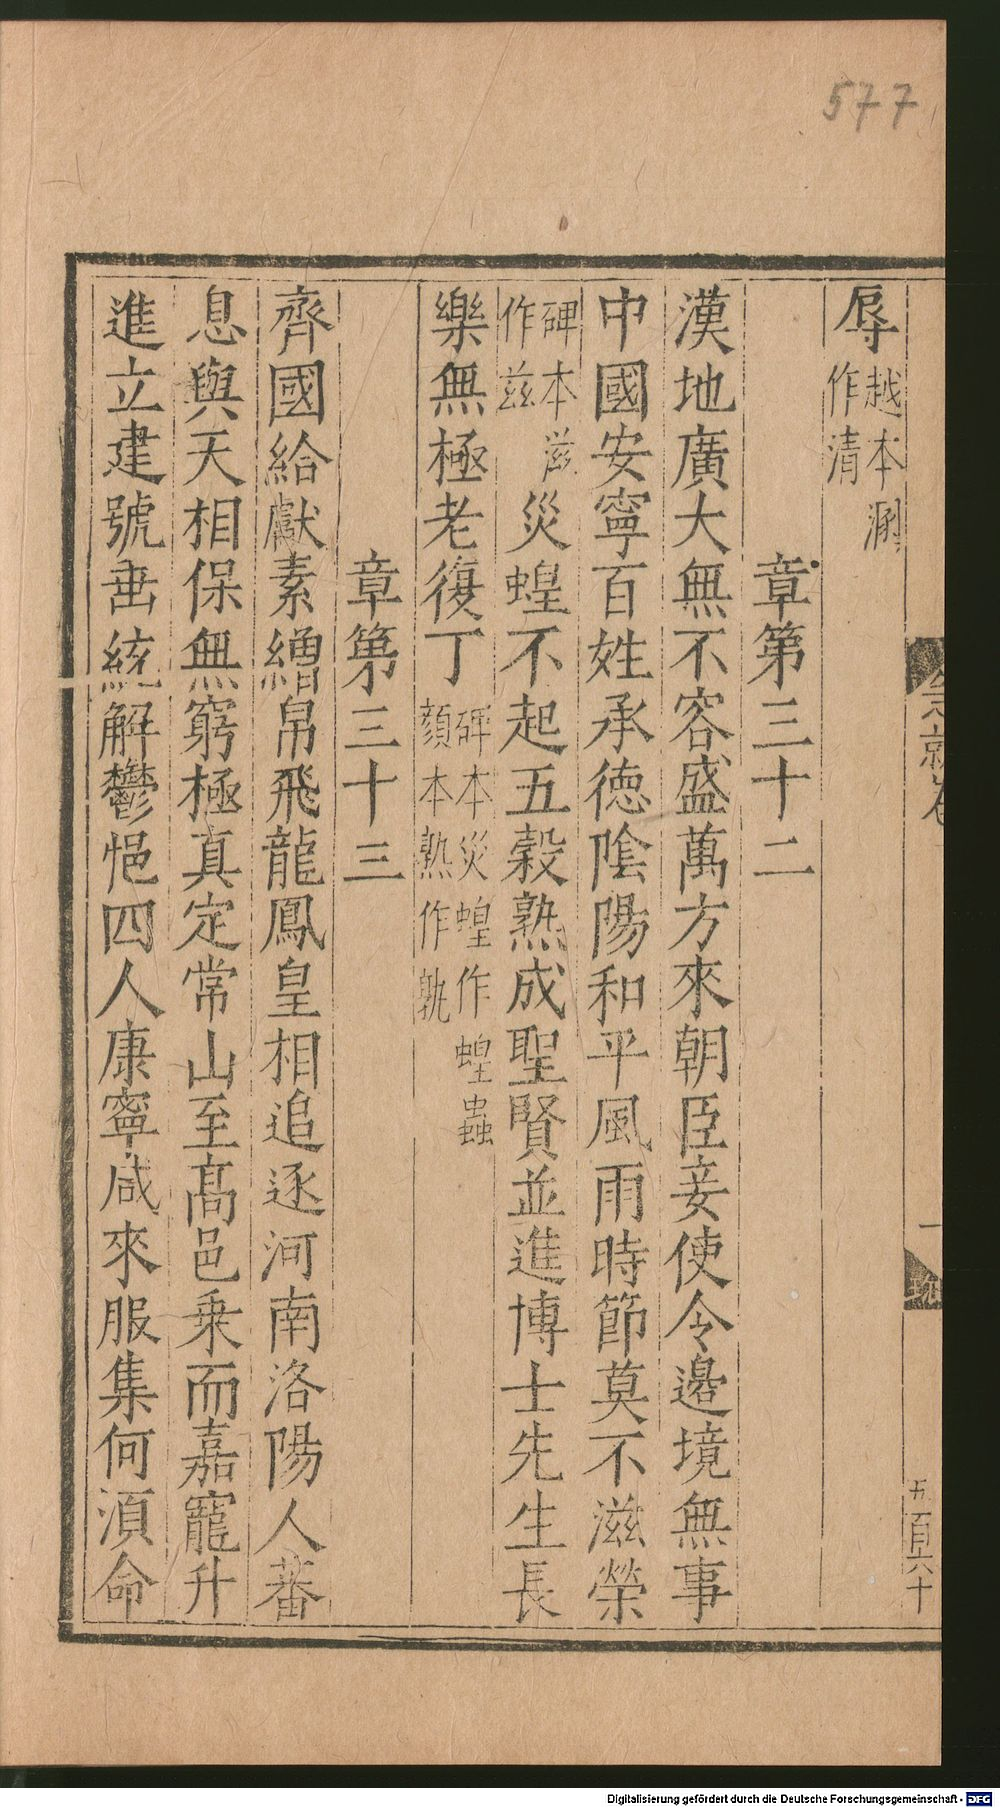 577
辱越本溷作清
章第三十二
漢地廣大無不容盛萬方來朝臣妾使令邊境無事
中國安寧百姓承德陰陽和平風雨時節莫不滋榮
碑本滋作玆災蝗不起五穀熟成聖賢並進博士先生長
樂無極老復丁碑本災蝗作蝗蟲顏本熟作孰
章第三十三
齊國給獻素繒帛飛龍鳳皇相追逐河南洛陽人蕃
息與天相保無窮極真定常山至高邑乗而嘉寵升
進立建號垂統解鬱悒四人康寧咸來服集何湏命
Digitalisierung gefördert durch die Deutsche Forschungsgemeinschaft - DFG